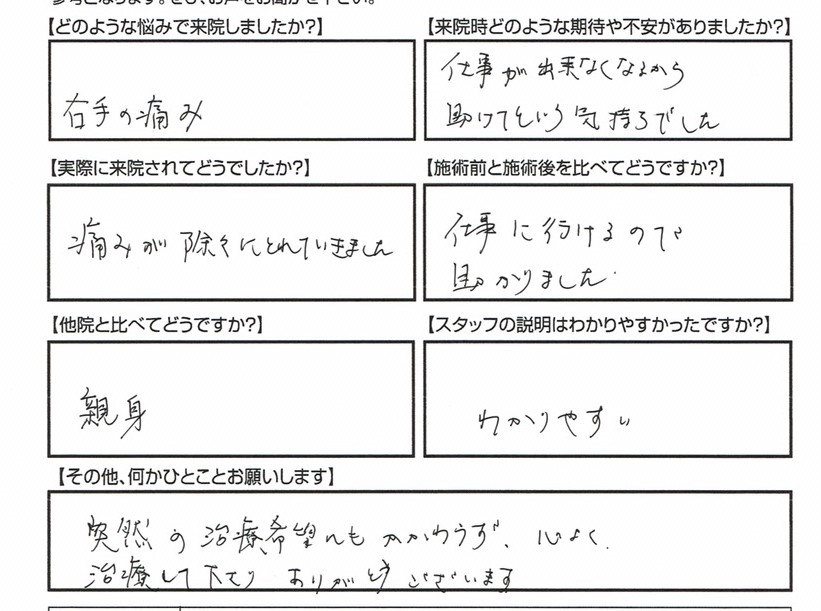 参考となります。ぜひ、お声をお聞かせ下さい。
【どのような悩みで来院しましたか?】
右手の痛み
【来院時どのような期待や不安がありましたか?】
仕事が出来なくなるから
助けてという気持ちでした
【実際に来院されてどうでしたか?】
痛みが除々にとれていきました
【施術前と施術後を比べてどうですか?】
仕事に行けるので
助かりました
【他院と比べてどうですか?】
親身
【スタッフの説明はわかりやすかったですか?】
わかりやすい
【その他、何かひとことお願いします】
突然の治療希望にもかかわらず、心よく
治療して下さり ありがとうございます